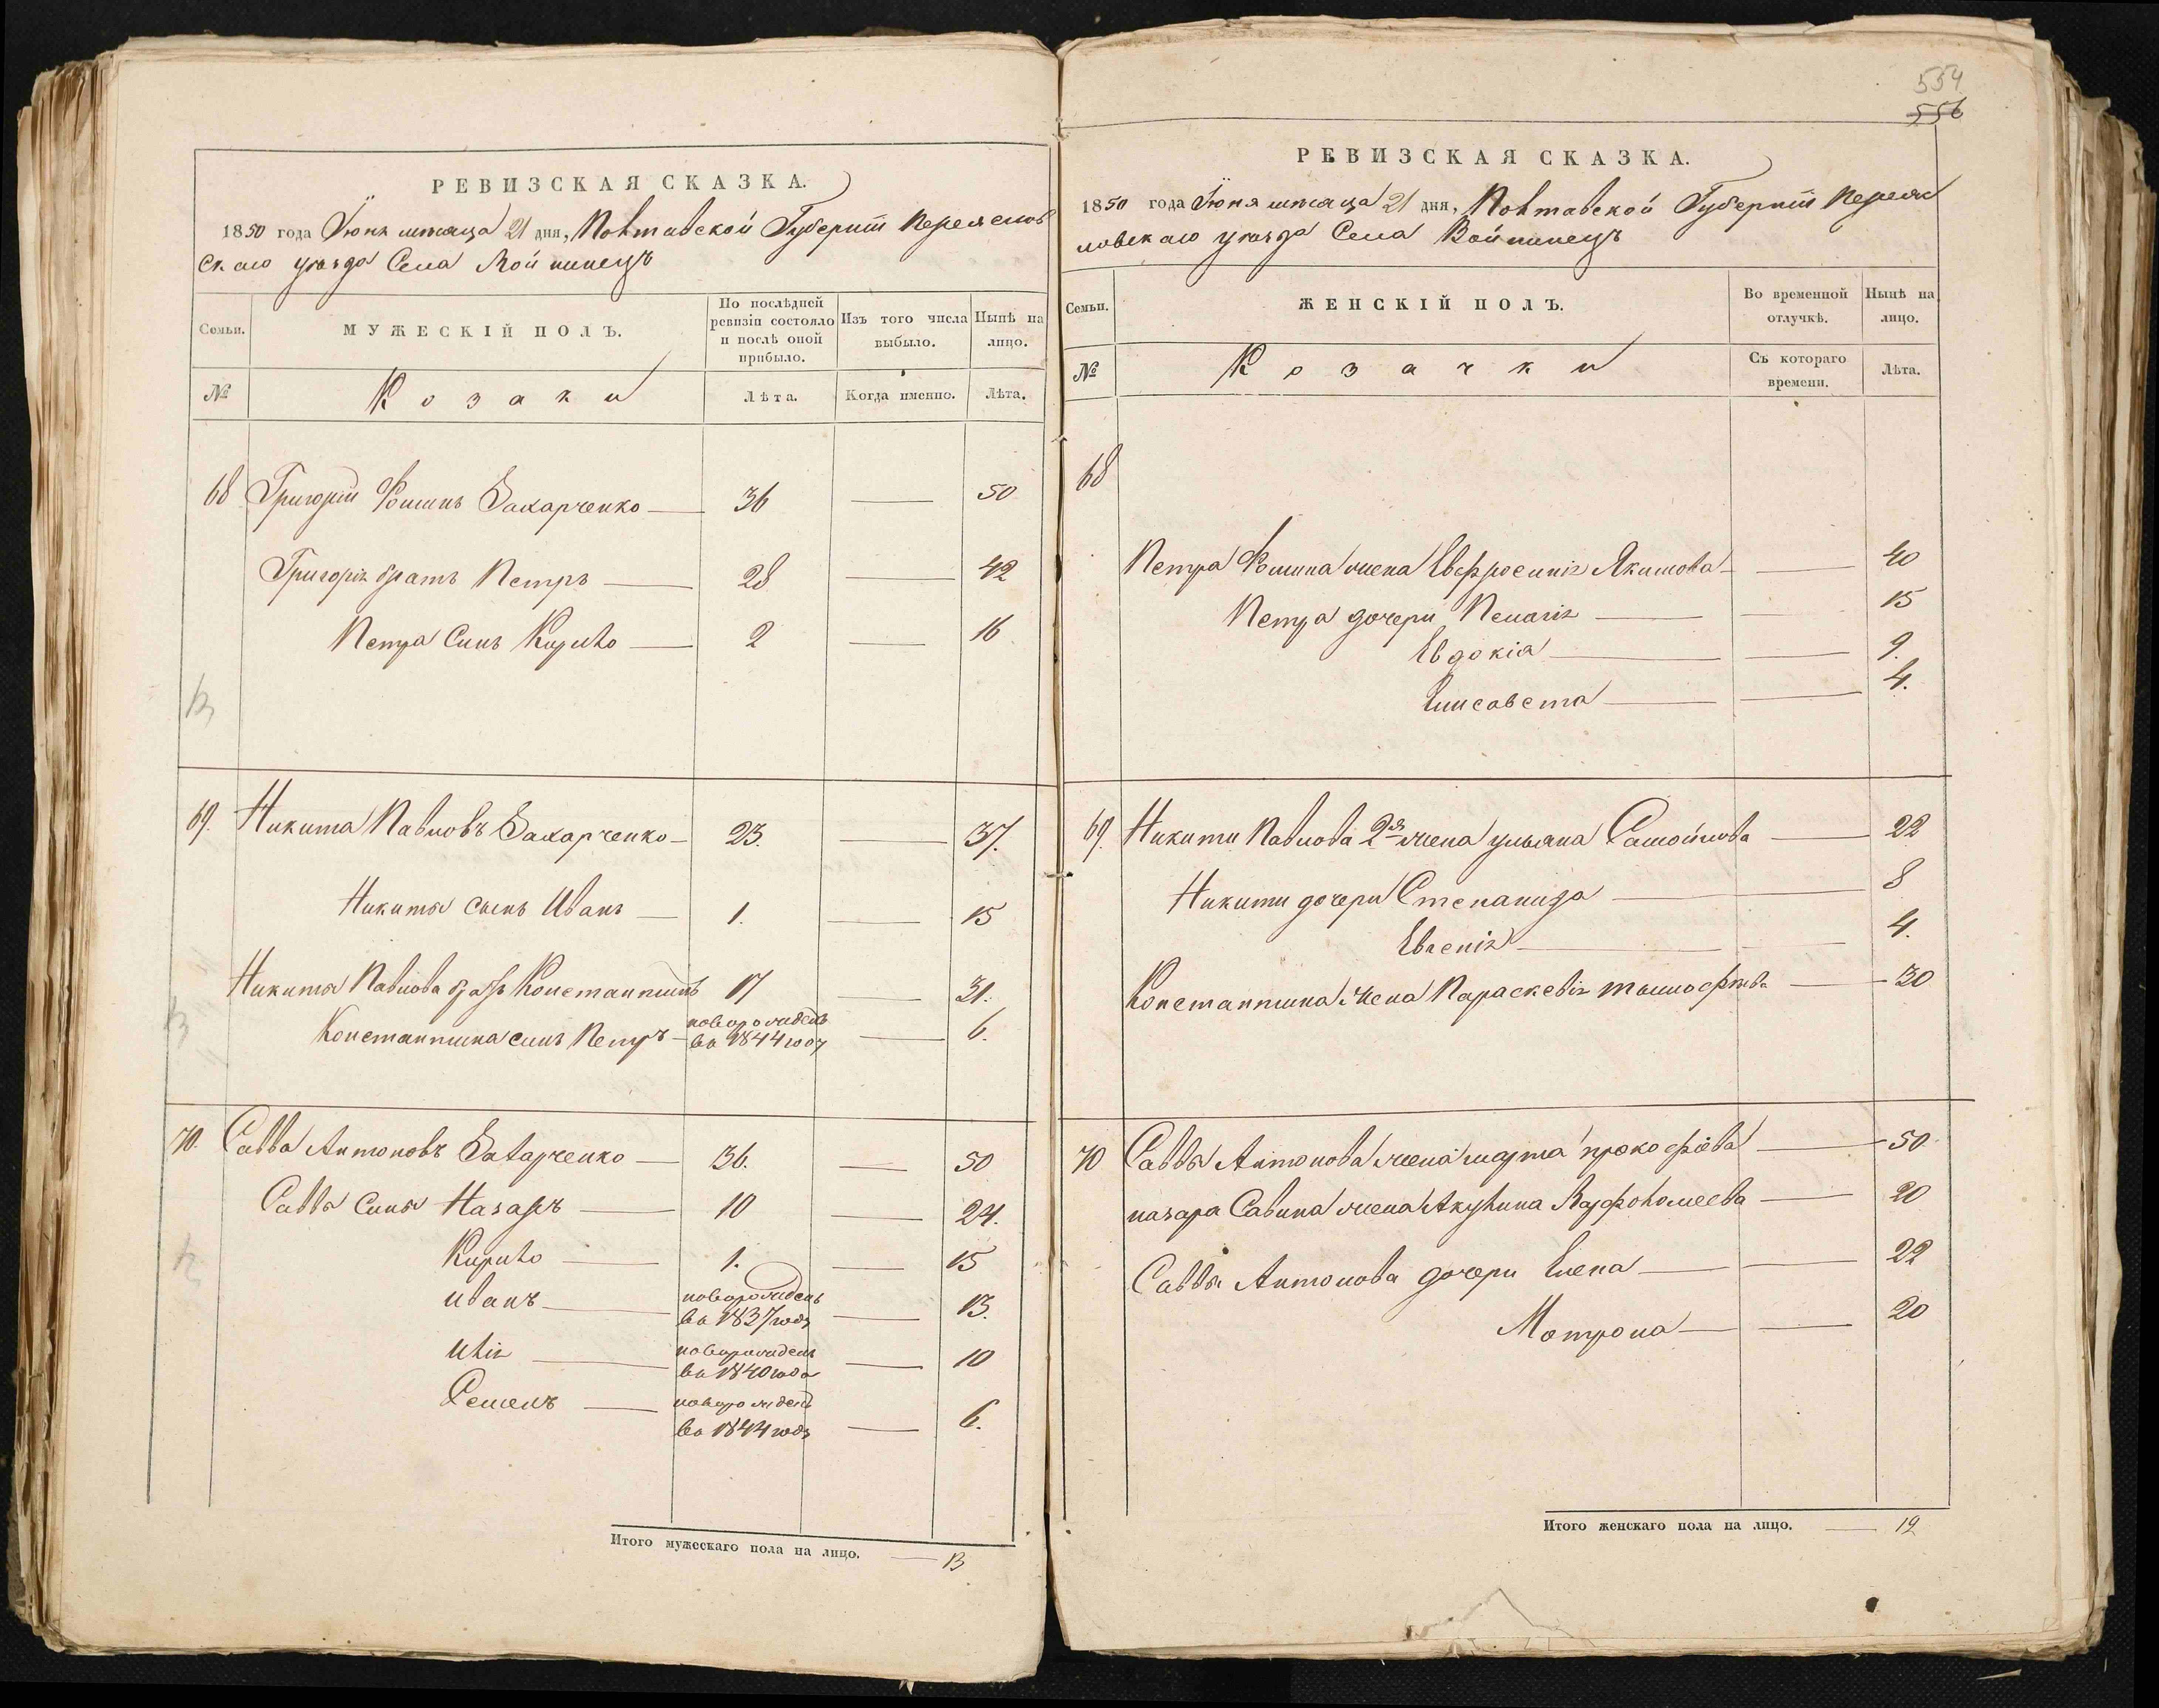 РЕВИЗСКАЯ СКАЗКА.
1850 года Іюня мѣсяца 21 дня, Полтавской Губерніи Переяслов
скаго уѣзда Села Войтинецъ
Семьи. МУЖЕСКІЙ ПОЛЪ. По послѣдней ревизіи состояло и послѣ оной прибыло. Изъ того числа выбыло. Нынѣ на лицо.
№ Козаки Лѣта. Когда именно. Лѣта.
68 Григорій Фоминъ Захарченко 36 — 50
Григорія братъ Петръ 28 — 42
Петра Синъ Кирило 2 — 16
69. Никита Павловъ Захарченко 23. — 37.
Никиты сынъ Иванъ 1. — 15
Никиты Павлова братъ Константинъ 17 — 31.
Константина синъ Петръ новорожденъ в 1844 году — 6.
70. Савва Антоновъ Захарченко 36. — 50
Саввы Сины Назаръ 10 — 24.
Кирило 1. — 15
Иванъ новорожденъ в 1837 годѣ — 13.
Илія новорожденъ в 1840 года — 10
Семенъ новорожденъ в 1844 годѣ — 6.
Итого мужескаго пола на лицо. — 13
554
556
РЕВИЗСКАЯ СКАЗКА.
1850 года Іюня мѣсяца 21 дня, Полтавской Губерніи Переяс
ловскаго уѣзда Села Войтинецъ
Семьи. ЖЕНСКІЙ ПОЛЪ. Во временной отлучкѣ. Нынѣ на лицо.
№ Козачки Съ котораго времени. Лѣта.
68
Петра Фомина жена Евфросинія Якимова — 40
Петра дочери Пелагія — 15
Евдокія — 9.
Елисавета — 4.
69. Никити Павлова 2я жена Ульяна Самойлова — 22
Никити дочери Степанида — 8
Евгенія — 4.
Константина жена Параскевія Тимофѣева — 30
70 Саввы Антонова жена Марта Прокофіева — 50
Назара Савина жена Акулина Варфоломеева — 20
Саввы Антонова дочери Елена — 22
Мотрона — 20
Итого женскаго пола на лицо. — 12